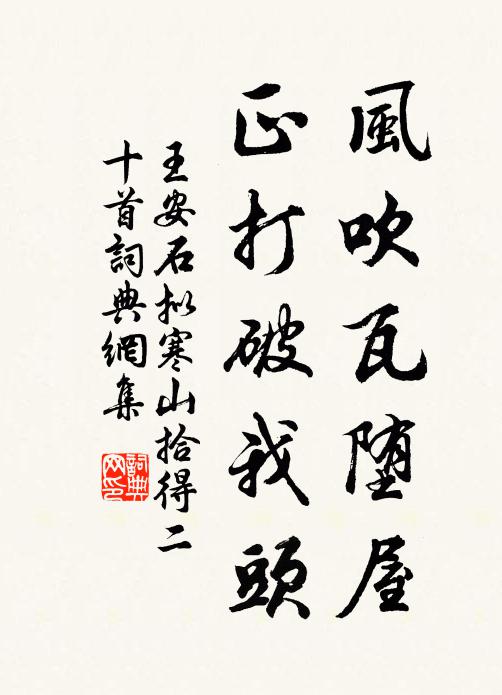 風吹瓦堕屋
正打破我頭
王安石拟寒山拾得二
十首詞典網集
詞典
网印